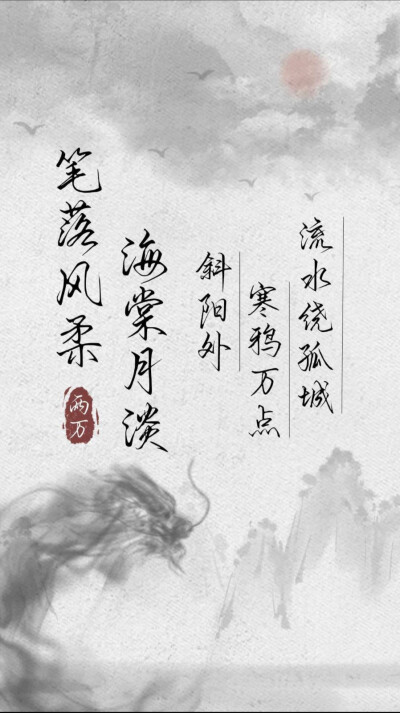 笔落风柔
海棠月淡
两万
斜阳外
寒鸦万点
流水绕孤城